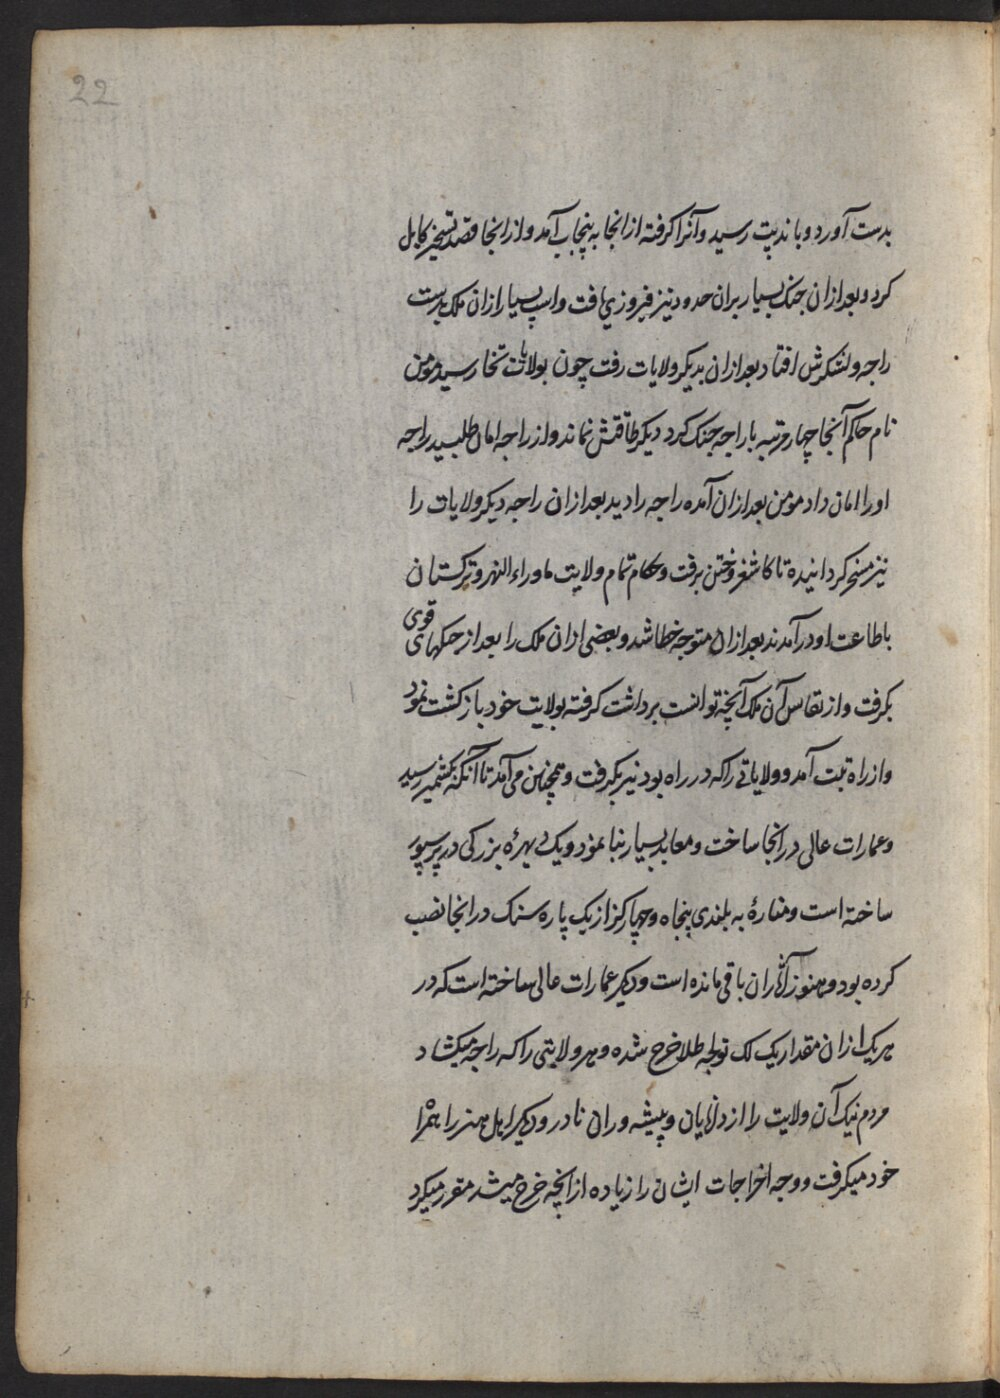 22
بدست آورد و باندپت رسید و آنرا کرفته از انجا به پنجاب آمد و از انجا قصد تسخیر کابل
کرد و بعد ازان جنک بسیار بران حدود نیز فیروزی یافت و اسپ بسیار ازان ملک بدست
راجه و لشکرش افتاد بعد ازان بدیکر ولایات رفت چون بولایت تخار سید مومن
نام حاکم آنجا چهار مرتبه با راجه جنک کرد دیکر طاقتش نماند و از راجه امان طلبید راجه
او را امان داد مومن بعد ازان آمده راجه را دید بعد ازان راجه دیکر ولایات را
نیز مسخر کردانیده تا کاشغر و ختن برفت و حکام تمام ولایت ماوراء النهر و ترکستان
باطاعت او در آمدند بعد ازان متوجه خطا شد و بعضی ازان ملک را بعد از جنکهای قوی
بکرفت و از نفاس آن ملک آنچه توانست برداشت کرفته بولایت خود باز کشت نمود
و از راه تبت آمد و ولایاتی را که در راه بود نیز بکرفت و همچنین می آمد تا آنکه بکشمیر رسید
و عمارات عالی در انجا ساخت و معابد بسیار بنا نمود و یک دیهرهٔ بزرکی در پرسپور
ساخته است و منارهٔ به بلندی پنجاه و چهار کز از یک پاره سنک در انجا نصب
کرده بود و هنوز آثار ان باقی مانده است و دیکر عمارات عالی ساخته است که در
هر یک ازان مقدار یک لک توله طلا خرج شده و هر ولایتی را که راجه میکشاد
مردم نیک آن ولایت را از دانایان و پیشه وران نادر و دیکر اهل هنر را همراه
خود میکرفت و وجه اخراجات ایشان را زیاده از انچه خرج میشد مقرر میکرد